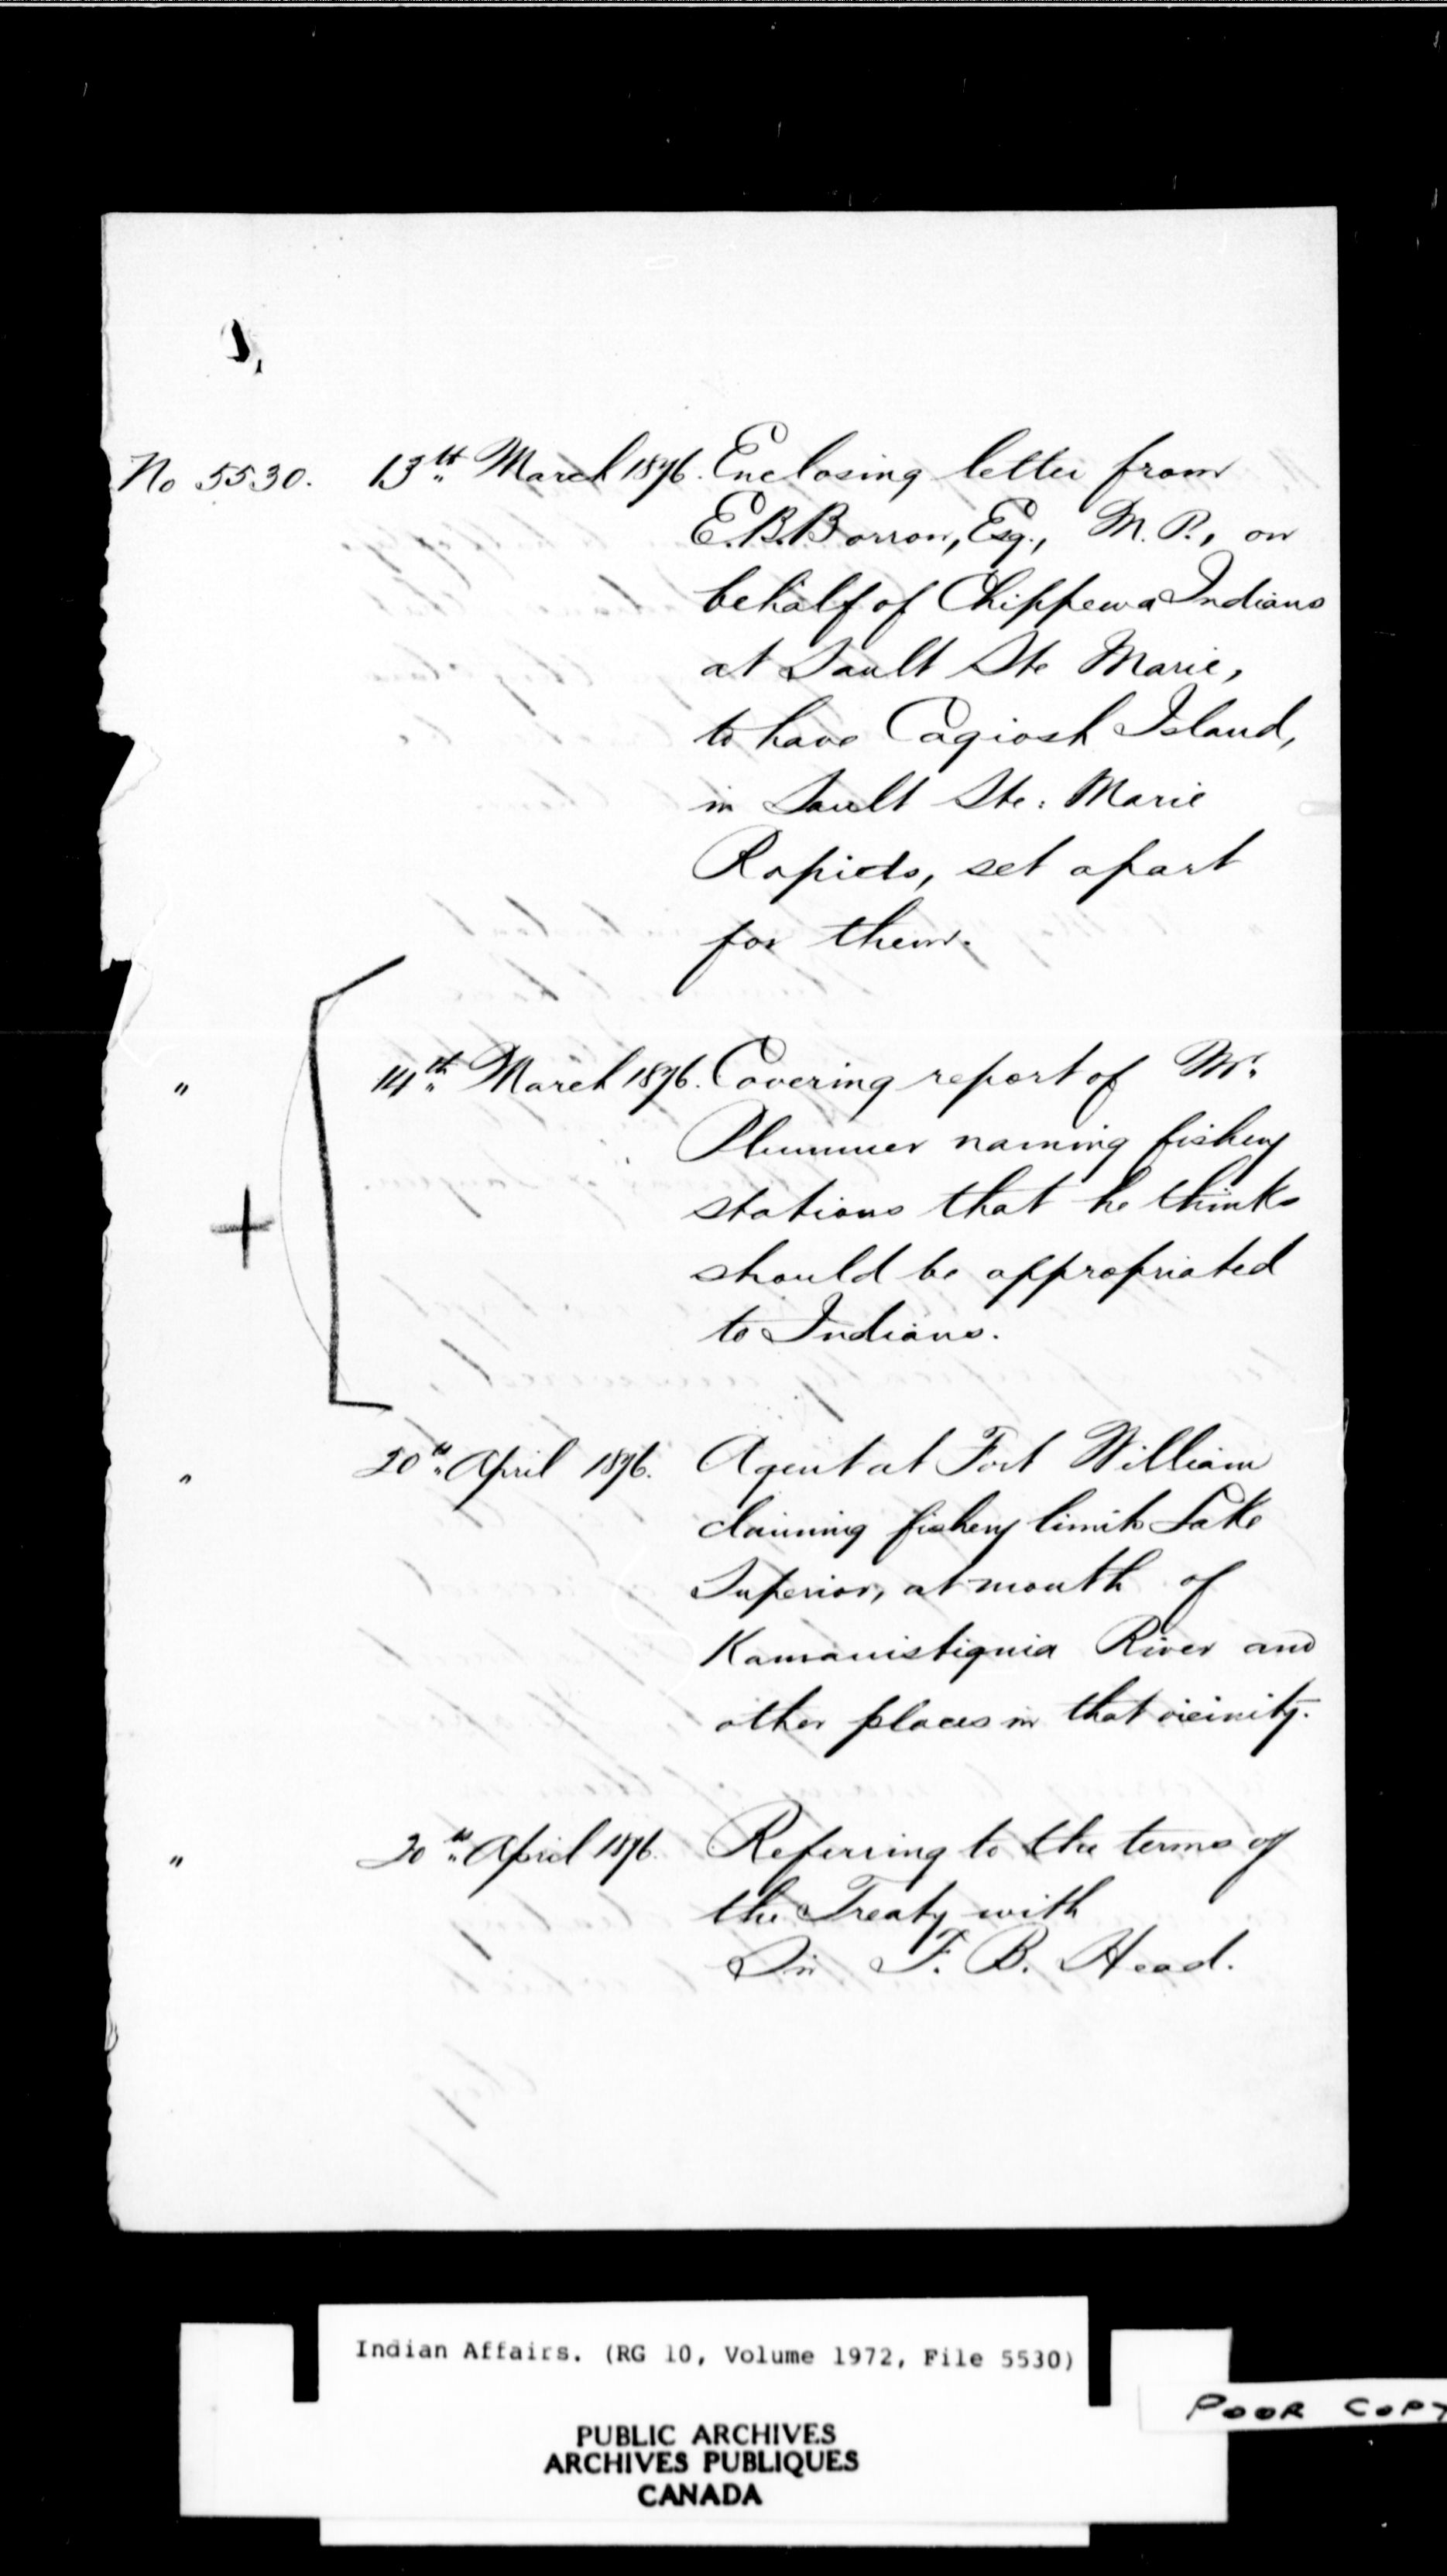 1,
No 5530. 13th March 1876. Enclosing letter from
E.B. Borron, Esq., M.P., on
behalf of Chippewa Indians
at Sault Ste Marie,
to have Cagiosh Island,
in Sault Ste: Marie
Rapids, set apart
for them.
" 14th March 1876. Covering report of Mr.
Plummer naming fishery
stations that he thinks
should be appropriated
to Indians.
+
" 20th April 1876. Agent at Fort William
claiming fishery limits Lake
Superior, at mouth of
Kamanistiquia River and
other places in that vicinity.
" 20th April 1876. Referring to the terms of
the Treaty with
Sir F. B. Head.
Indian Affairs. (RG 10, Volume 1972, File 5530)
PUBLIC ARCHIVES
ARCHIVES PUBLIQUES
CANADA
POOR COPY